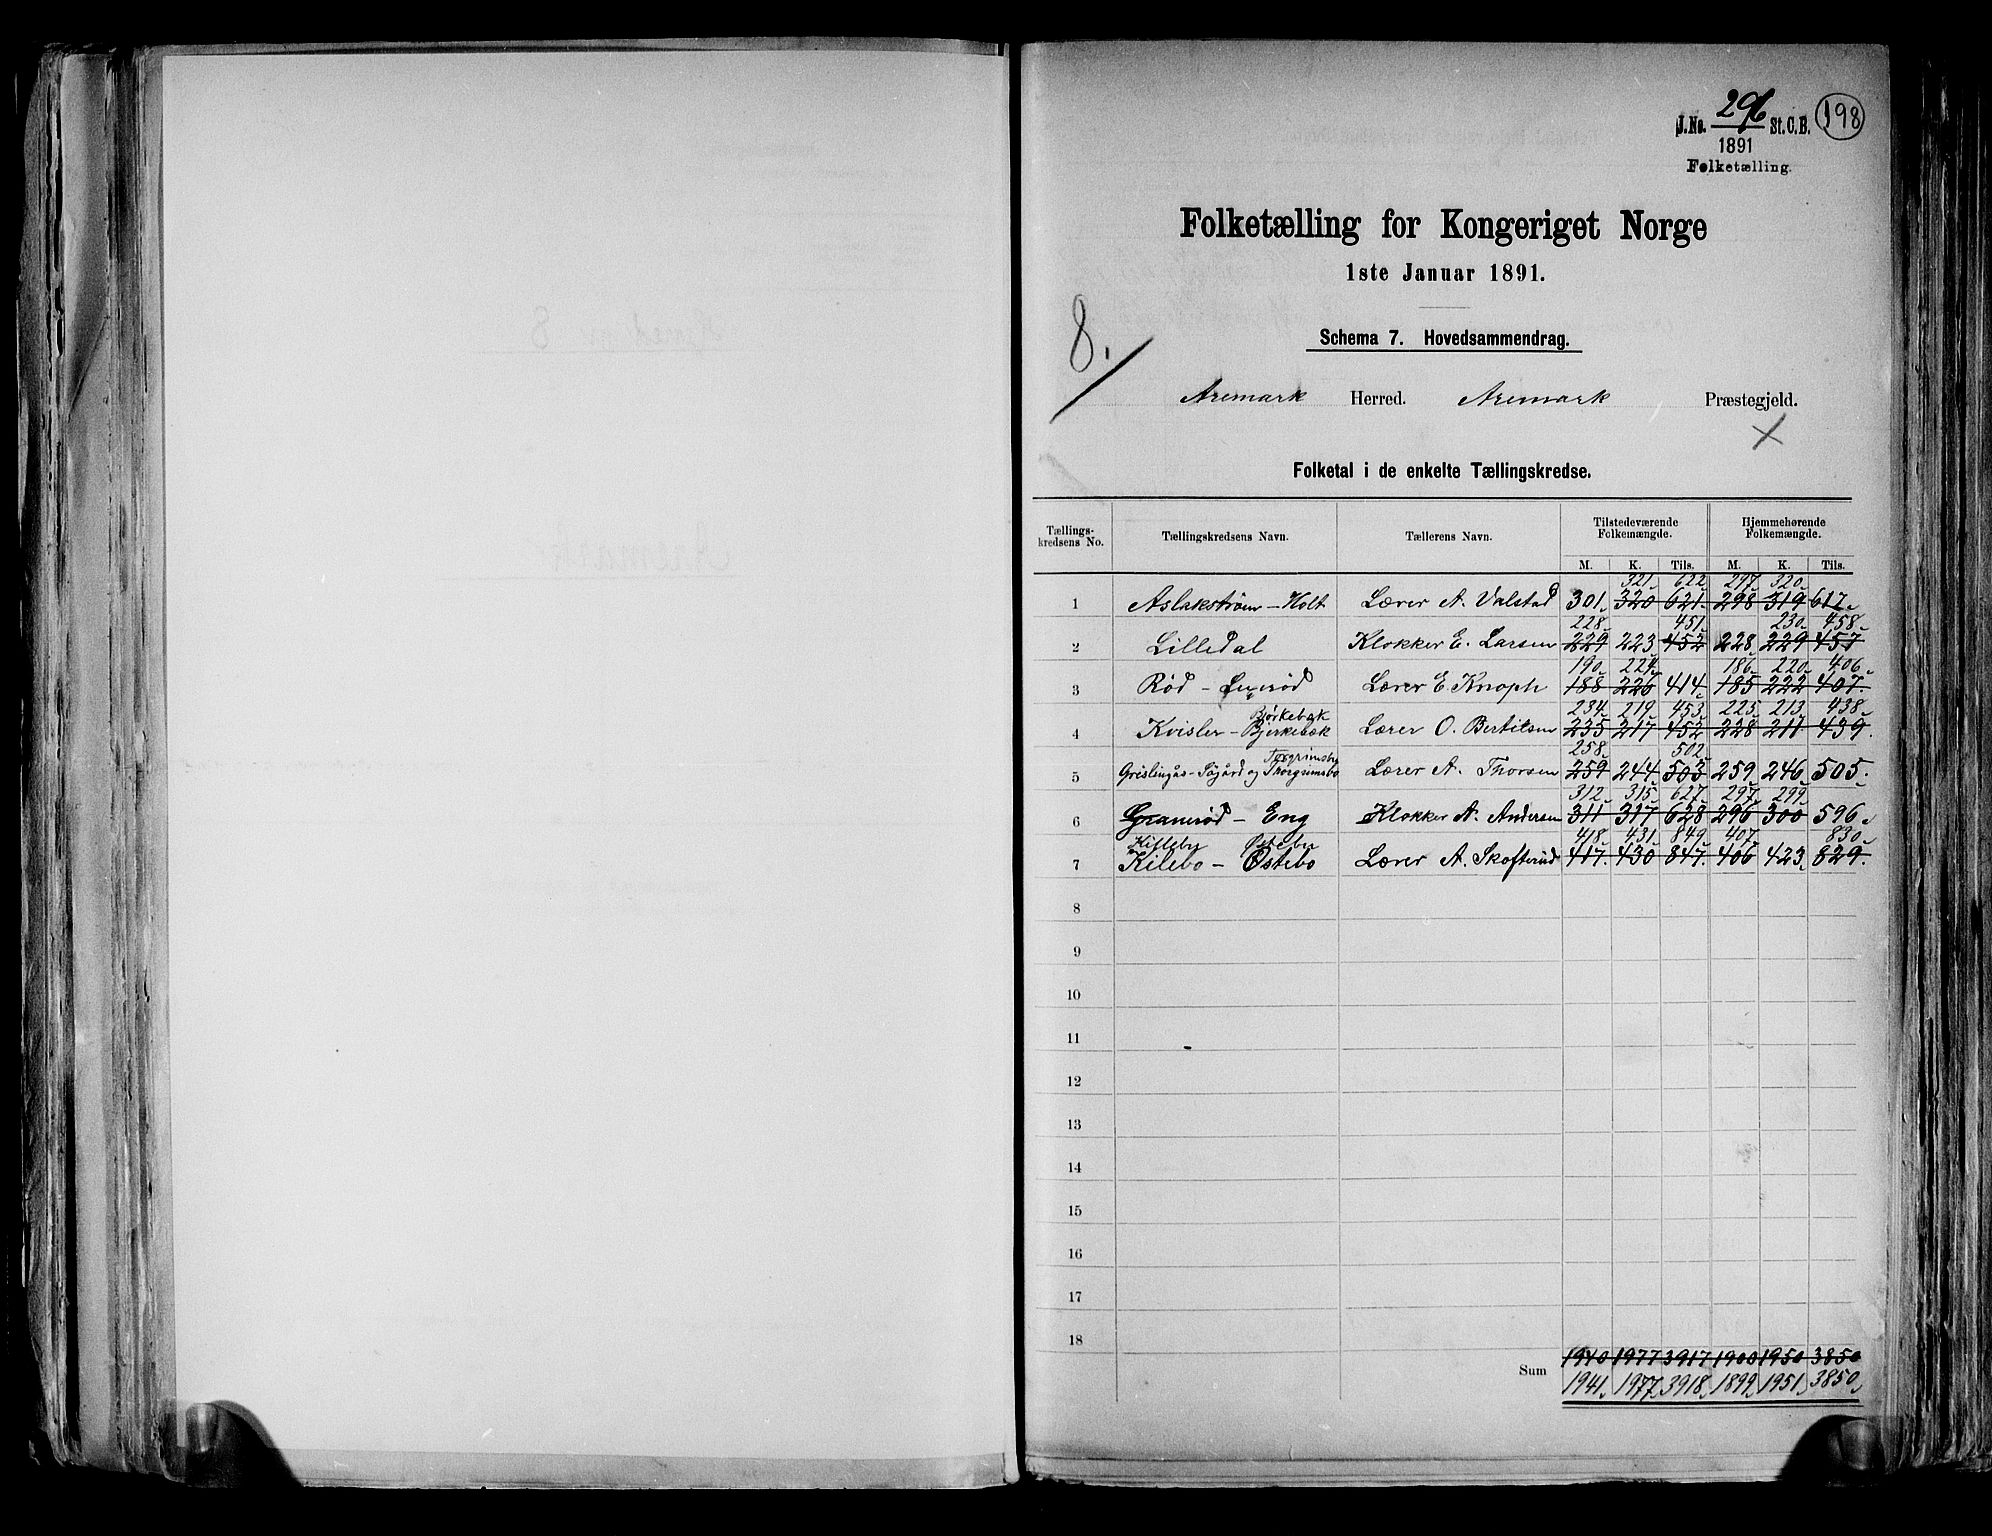 296
J.No. St.C.B. 198
1891
Folketælling.
Folketælling for Kongeriget Norge
1ste Januar 1891.
8.
Schema 7. Hovedsammendrag.
Aremark Herred. Aremark Præstegjeld.
Folketal i de enkelte Tællingskredse.
Tællings-kredsens No. Tællingskredsens Navn. Tællerens Navn. Tilstedeværende Folkemængde. Hjemmehørende Folkemængde.
M. K. Tils. M. K. Tils.
321 622 297 320
1 Aslakstrøm - Holt Lærer A. Valstad 301 320 621 298 319 617
228 451 230 458
2 Lilledal Klokker E. Larsen 229 223 452 228 229 457
190 224 186 220 406
3 Rød - Lærer E. Knoph 188 226 414 185 222 407
Bjørkebæk 234 219 453 225 213 438
4 Kvisler - Bjerkebæk Lærer O. Bertelsen 235 217 452 228 211 439
Torgrimsby 258 502
5 Grislingås - Søgård og Thorgrimsbo Lærer A. Thorsen 259 244 503 259 246 505
312 315 627 297 299
6 Granerød - Eng Klokker A. Andersen 311 317 628 296 300 596
Killeby Østeby 418 431 849 407 830
7 Kilebo - Østebo Lærer A. Skofterud 417 430 847 406 423 829
8
9
10
11
12
13
14
15
16
17
18
1940 1977 3917 1900 1950 3850
Sum 1941 1977 3918 1899 1951 3850